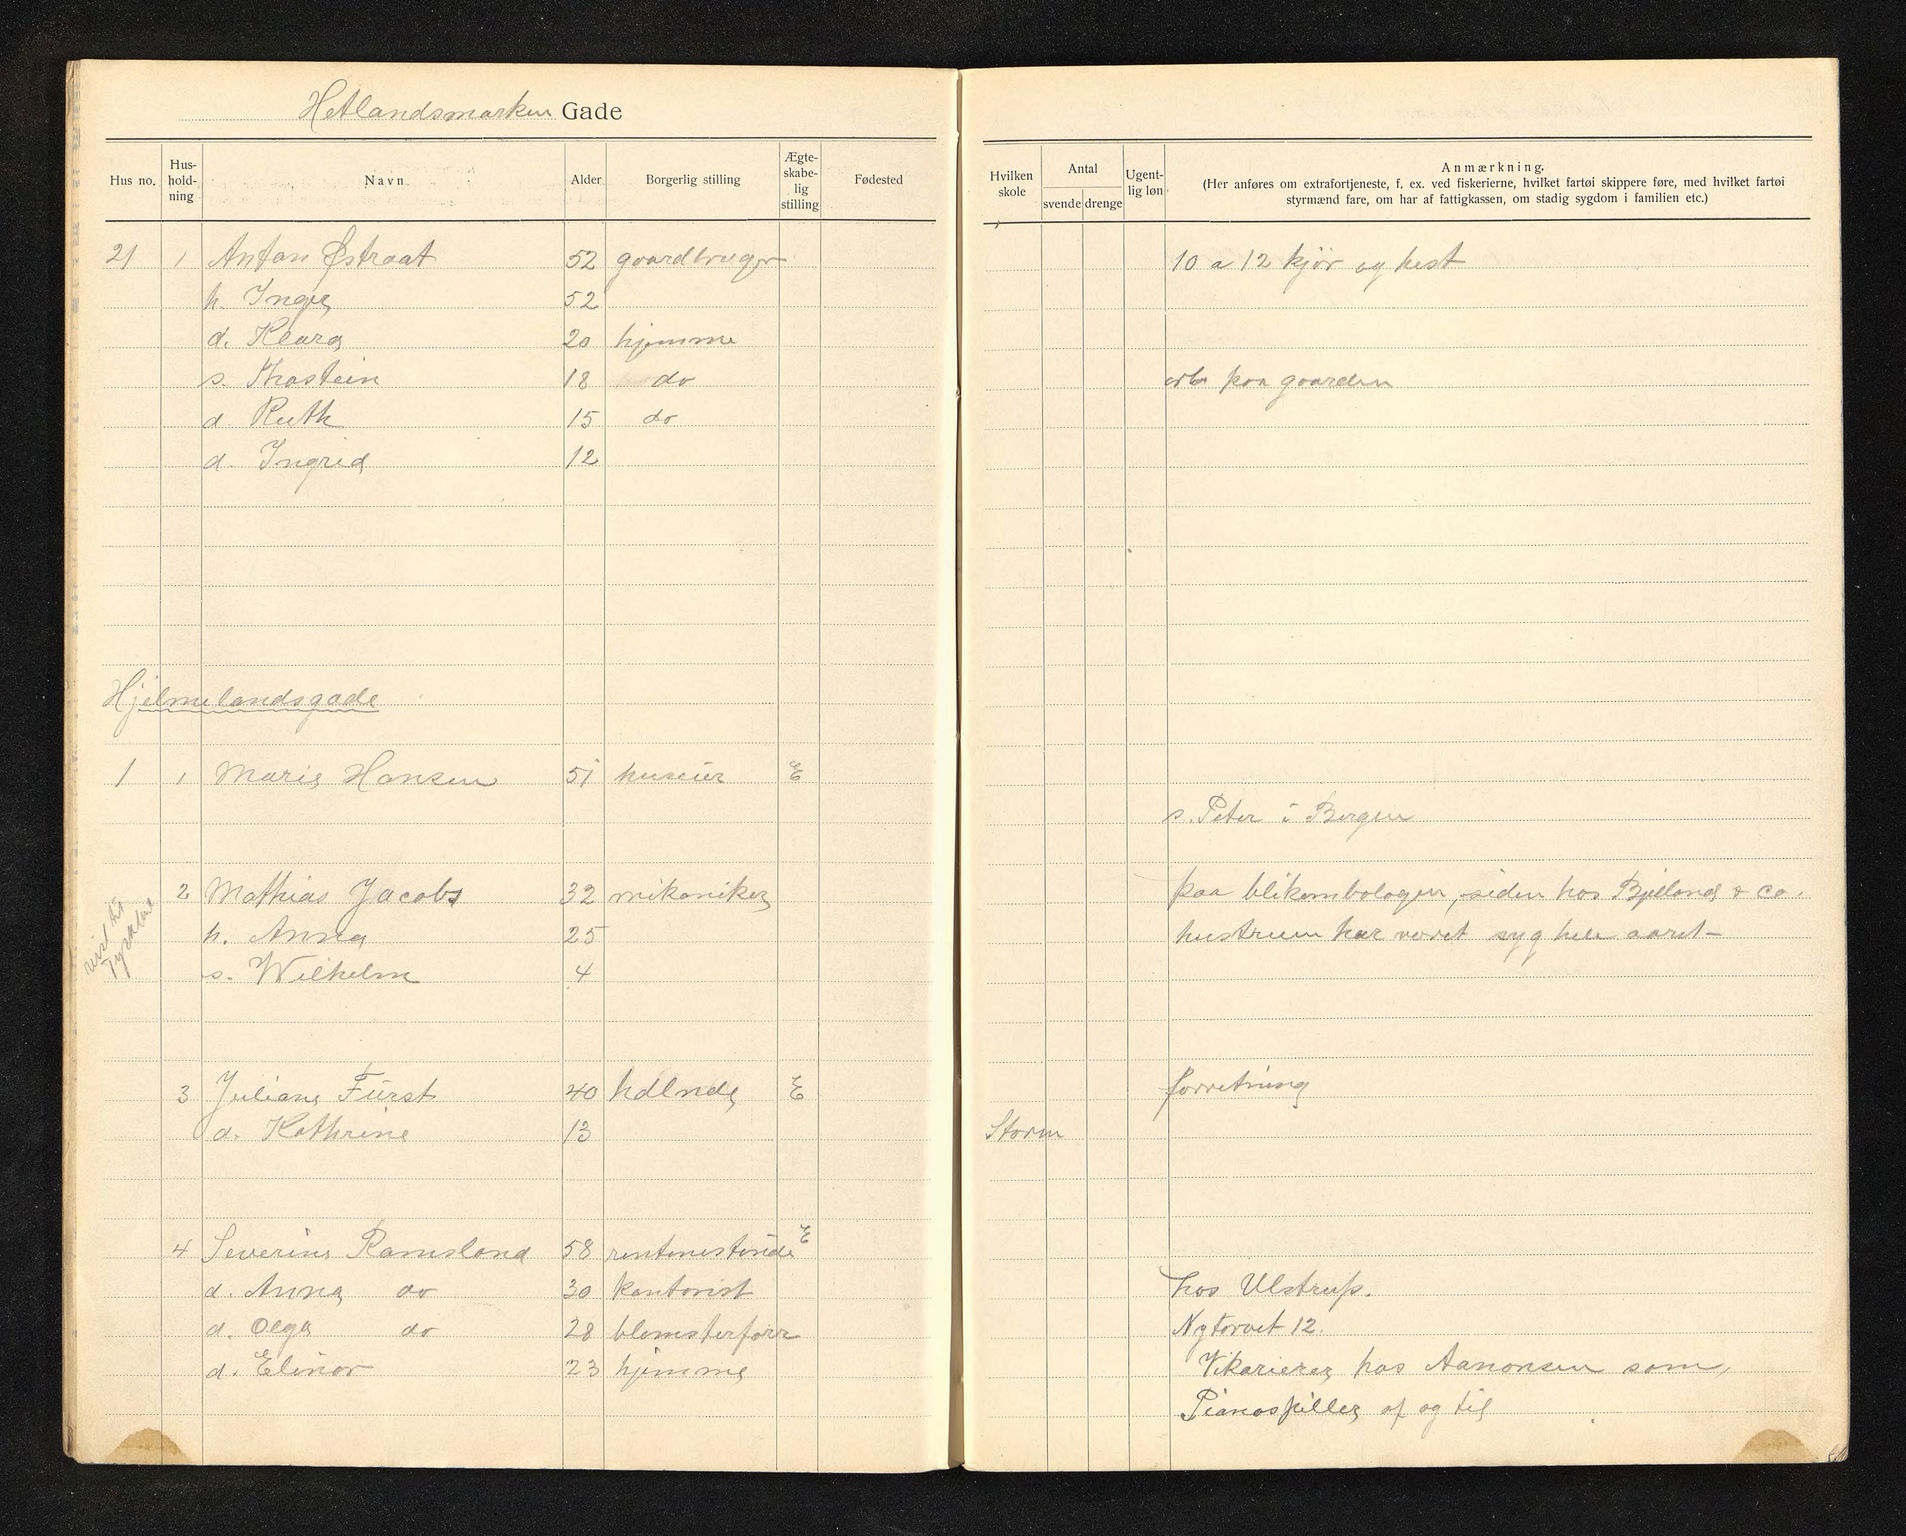 Hetlandsmarken Gade
Hus no. Hus-hold-ning Navn Alder Borgerlig stilling Ægte-skabe-lig stilling Fødested Hvilken skole Antal svende drenge Ugent-lig løn Anmærkning. (Her anføres om extrafortjeneste, f. ex. ved fiskerierne, hvilket fartøi skippere føre, med hvilket fartøi styrmænd fare, om har af fattigkassen, om stadig sygdom i familien etc.)
21 1 Anton Østraat 52 gaardbruger 10 a 12 kjör og hest
h. Inga 52
d. Klara 20 hjemme
s. Thostein 18 do arb paa gaarden
d. Ruth 15 do
d. Ingrid 12
Hjelmelandsgade
1 1 Marie Hansen 51 huseier E
s. Peter i Bergen
2 Mathias Jacobs 32 mikaniker paa blikembalagen, siden hos Bjelland & co.
h. Anna 25 hustruen har været syg hele aaret -
s. Wilhelm 4
reist til Tyskland
3 Juliane Fürst 40 hdlnde E forretning
d. Kathrine 13 Storm
4 Severine Ramsland 58 rentenistinde E
d. Anna do 30 kontorist hos Ulstrup.
d. Olga do 28 blomsterforr Nytorvet 12.
d. Elinor 23 hjemme Vikarierer hos Aanonsen som,
Pianospiller af og til